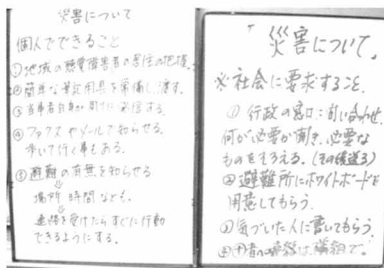 災害について
個人でできること
①地域の聴覚障害者の居住の把握。
②簡単な筆記用具を常備し、渡す。
③当事者自身が周りに発信する。
④ファクスやメールで知らせる。
歩いて行く事もある。
⑤避難の有無を知らせる
場所 時間なども。
連絡を受けたらすぐに行動
できるようにする。
「災害について」
※社会に要求すること。
① 行政の窓口に問い合わせ
何が必要か聞き、必要な
ものをそろえる。
②避難所にホワイトボードを
用意してもらう。
③気づいた人に書いてもらう。